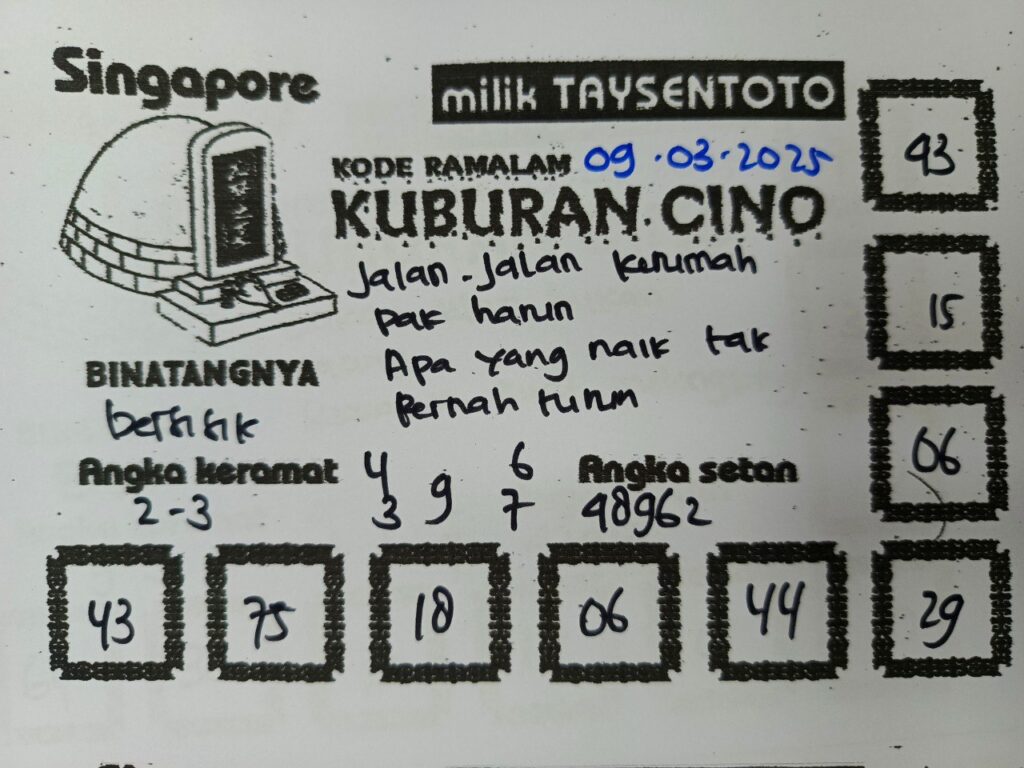 Singapore
milik TAYSENTOTO
KODE RAMALAM 09.03.2025
KUBURAN CINO
Jalan-Jalan kerumah
pak harun
Apa yang naik tak
pernah turun
BINATANGNYA
bersisik
Angka keramat
2-3
4 6
9
3 7
Angka setan
48962
93
15
06
43
75
18
06
44
29